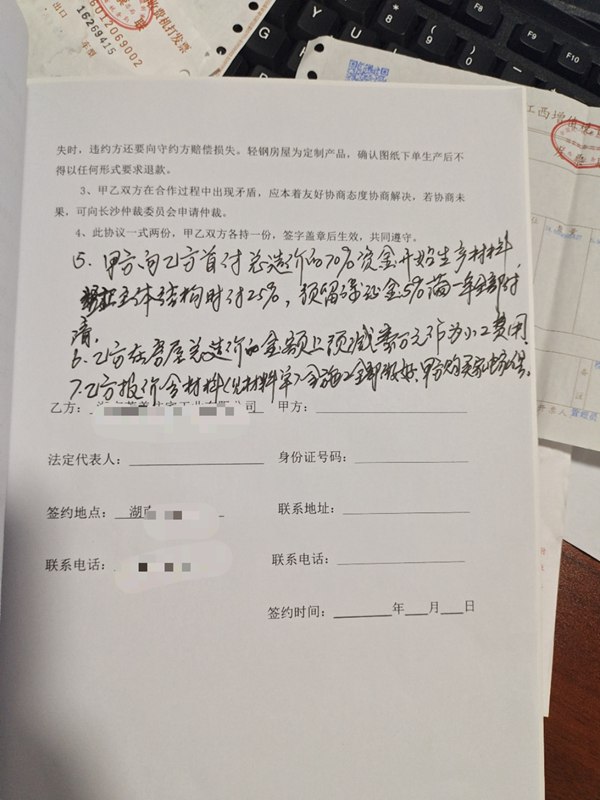 出口
车型
6012069002
16269415
江西增值税
失时，违约方还要向守约方赔偿损失。轻钢房屋为定制产品，确认图纸下单生产后不
得以任何形式要求退款。
3、甲乙双方在合作过程中出现矛盾，应本着友好协商态度协商解决，若协商未
果，可向长沙仲裁委员会申请仲裁。
4、此协议一式两份，甲乙双方各持一份，签字盖章后生效，共同遵守。
5、甲方向乙方首付总造价的70%资金开始生产材料，
主体结构时付25%，预留保证金5%满一年全部付
清。
6、乙方在房屋总造价的金额上预减壹万元作为小工费用
7、乙方报价含材料(见材料单)含施工全部做好。甲方购买
乙方：
甲方：
法定代表人：
身份证号码：
签约地点：湖南
联系地址：
联系电话：
联系电话：
签约时间：____年__月__日